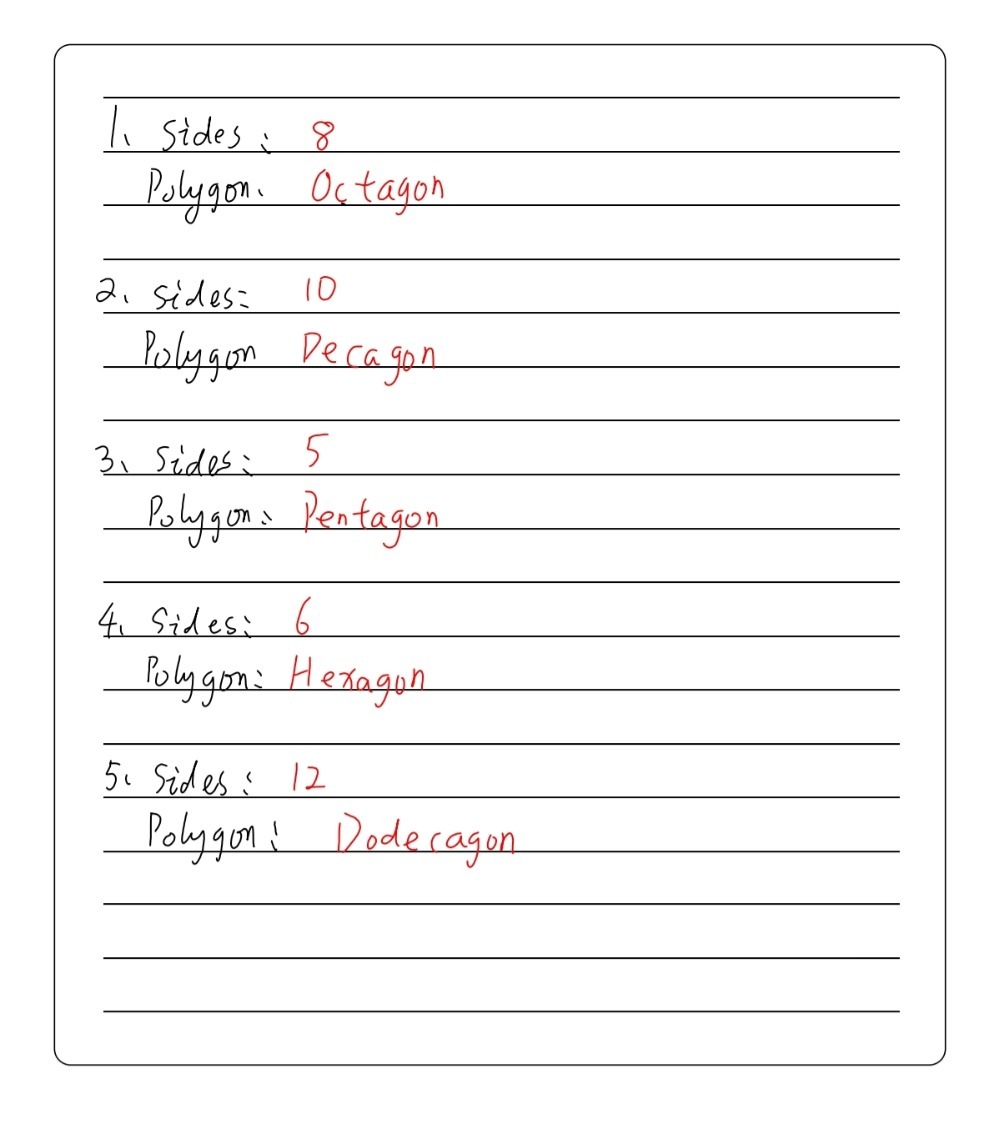 1. Sides: 8
Polygon. Octagon
2. Sides: 10
Polygon Decagon
3. Sides: 5
Polygon: Pentagon
4. Sides: 6
Polygon: Hexagon
5. Sides: 12
Polygon: Dodecagon